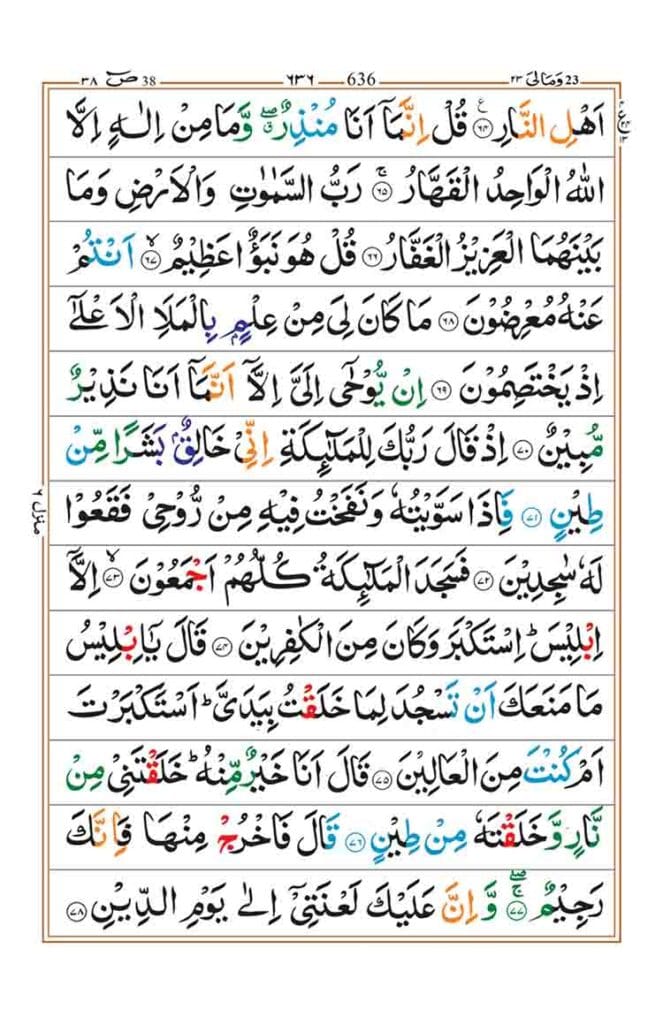 ص ٣٨ 38 ٦٣٦ 636 وَمَالِىَ ٢٣ 23
اَهۡلِ النَّارِ ﴿۶۴﴾ قُلۡ اِنَّمَاۤ اَنَا مُنۡذِرٌ ‌ۖ وَّمَا مِنۡ اِلٰهٍ اِلَّا
اللّٰهُ الۡوَاحِدُ الۡقَهَّارُ‌ ۚ‏ ﴿۶۵﴾ رَبُّ السَّمٰوٰتِ وَالۡاَرۡضِ وَمَا
بَيۡنَهُمَا الۡعَزِيۡزُ الۡغَفَّارُ ﴿۶۶﴾ قُلۡ هُوَ نَبَؤٌا عَظِيۡمٌۙ ﴿۶۷﴾ اَنۡتُمۡ
عَنۡهُ مُعۡرِضُوۡنَ ﴿۶۸﴾ مَا كَانَ لِىَ مِنۡ عِلۡمٍۭ بِالۡمَلَاِ الۡاَعۡلٰٓى
اِذۡ يَخۡتَصِمُوۡنَ ﴿۶۹﴾ اِنۡ يُّوۡحٰۤى اِلَىَّ اِلَّاۤ اَنَّمَاۤ اَنَا نَذِيۡرٌ
مُّبِيۡنٌ ﴿۷۰﴾ اِذۡ قَالَ رَبُّكَ لِلۡمَلٰٓٮِٕكَةِ اِنِّىۡ خَالِـقٌ ۢ بَشَرًا مِّنۡ
طِيۡنٍ ﴿۷۱﴾ فَاِذَا سَوَّيۡتُهٗ وَنَفَخۡتُ فِيۡهِ مِنۡ رُّوۡحِىۡ فَقَعُوۡا
لَهٗ سٰجِدِيۡنَ ﴿۷۲﴾ فَسَجَدَ الۡمَلٰٓٮِٕكَةُ كُلُّهُمۡ اَجۡمَعُوۡنَۙ ﴿۷۳﴾ اِلَّاۤ
اِبۡلِيۡسَؕ اِسۡتَكۡبَرَ وَكَانَ مِنَ الۡكٰفِرِيۡنَ ﴿۷۴﴾ قَالَ يٰۤـاِبۡلِيۡسُ
مَا مَنَعَكَ اَنۡ تَسۡجُدَ لِمَا خَلَقۡتُ بِيَدَىَّ‌ؕ اَسۡتَكۡبَرۡتَ
اَمۡ كُنۡتَ مِنَ الۡعَالِيۡنَ ﴿۷۵﴾ قَالَ اَنَا خَيۡرٌ مِّنۡهُ‌ؕ خَلَقۡتَنِىۡ مِنۡ
نَّارٍ وَّخَلَقۡتَهٗ مِنۡ طِيۡنٍ ﴿۷۶﴾ قَالَ فَاخۡرُجۡ مِنۡهَا فَاِنَّكَ
رَجِيۡمٌ ۖۚ ﴿۷۷﴾ وَّاِنَّ عَلَيۡكَ لَعۡنَتِىۡۤ اِلٰى يَوۡمِ الدِّيۡنِ ﴿۷۸﴾
منزل ٦